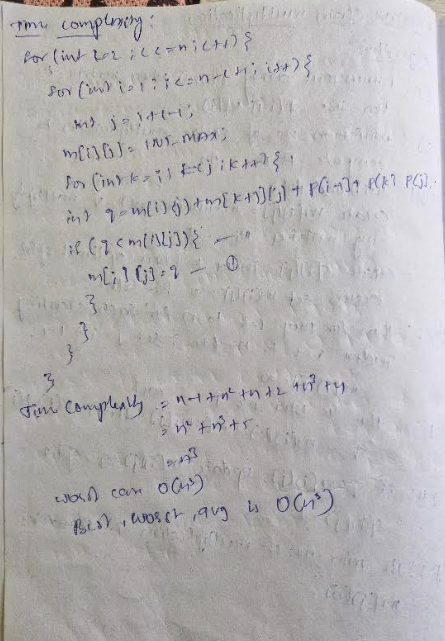 Time complexity:
for (int c=2; c<=n; c++) {
for (int i=1; i<=n-c+1; i++) {
int j=i+c-1;
m[i][j]= INT-MAX;
for (int k=i; k<j; k++) {
int q=m[i][j]+m[k+1][j]+P[i-1]*P[k]*P[j];
if (q<m[i][j]) {
m[i][j]=q — ①
}
}
}
}
Time complexity = n-1+n²+n+2+n³+4
= n²+n³+5
= n³
worst case O(n³)
Best, worst, avg is O(n³)